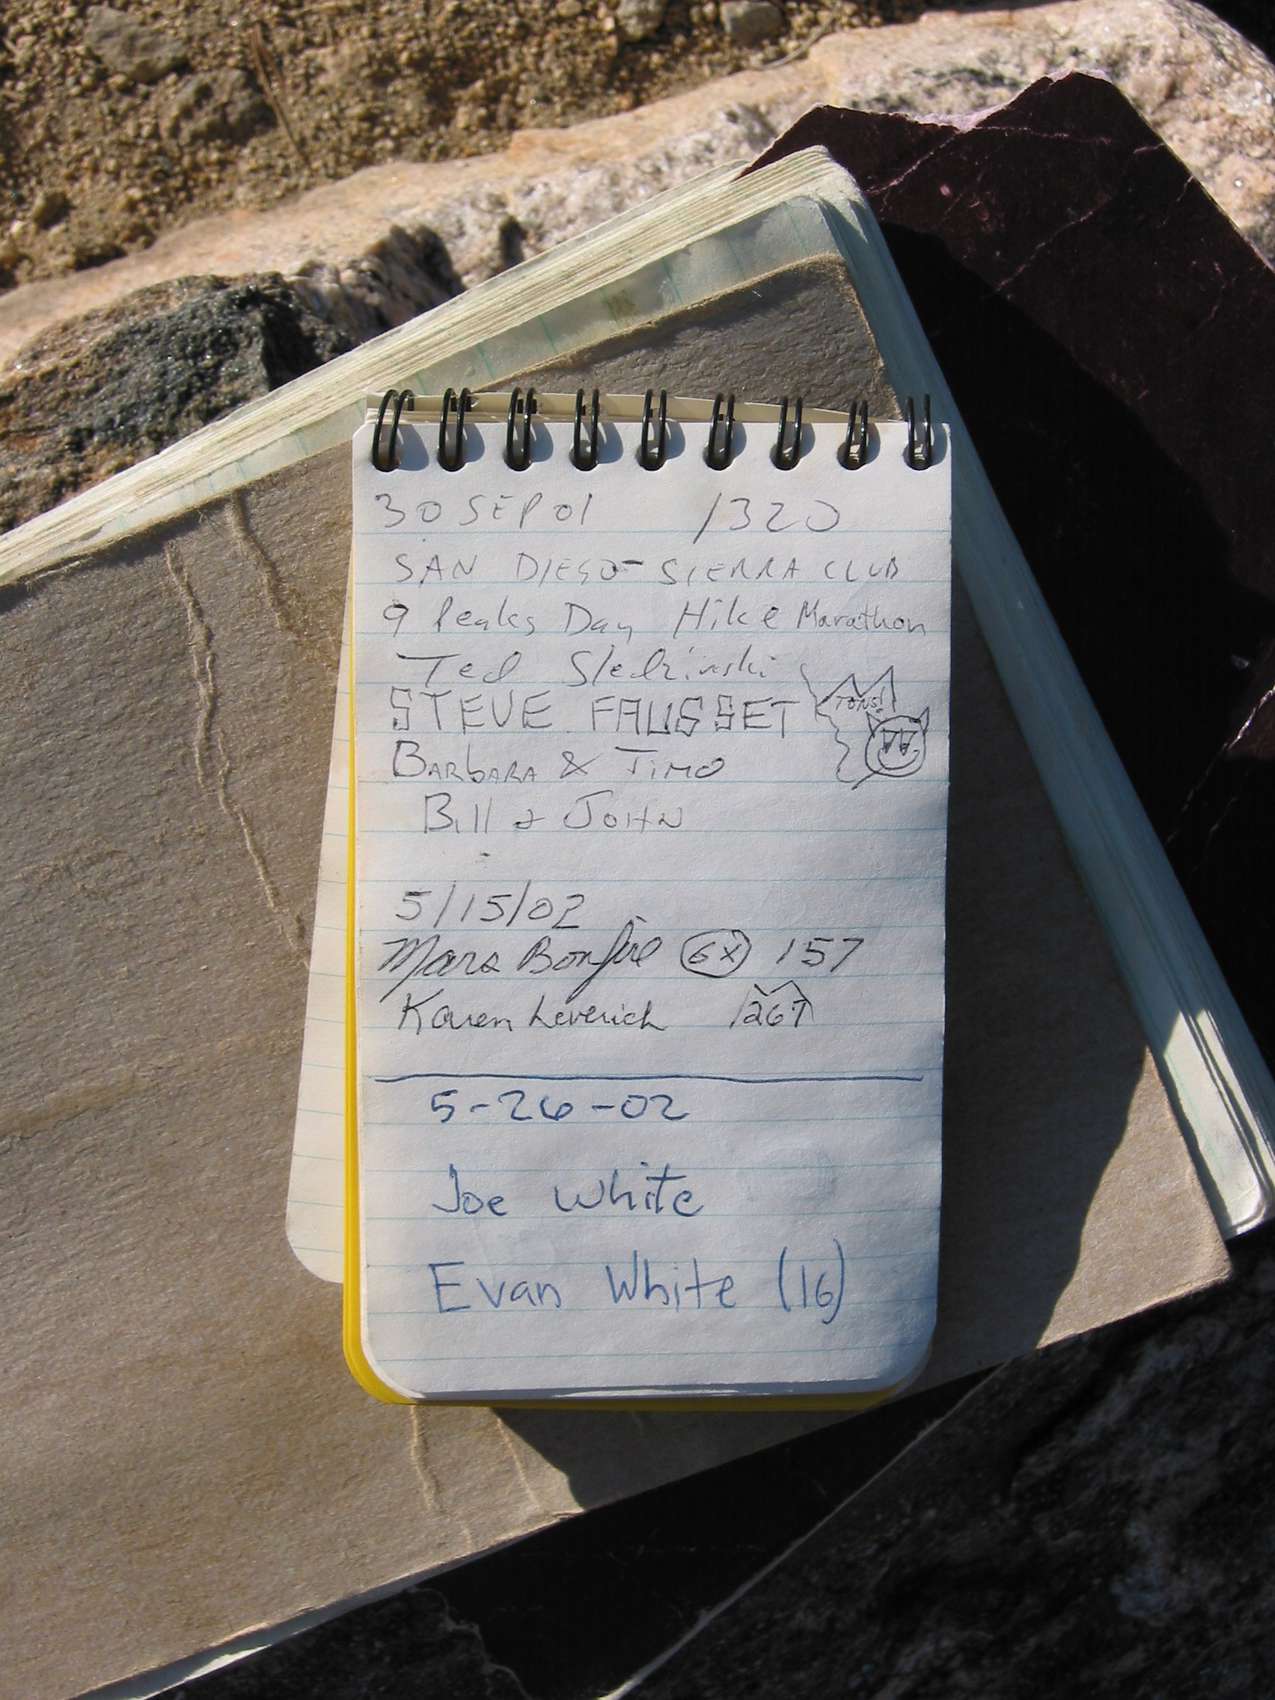 30 SEP 01 1320
SAN DIEGO SIERRA CLUB
9 Peaks Day Hike Marathon
Ted Sledzinski
STEVE FAUSSET
TONS!
BARBARA & TIMO
Bill & JOHN
5/15/02
Mars Bonfire 6X 157
Karen Leverich 267
5-26-02
Joe White
Evan White (16)